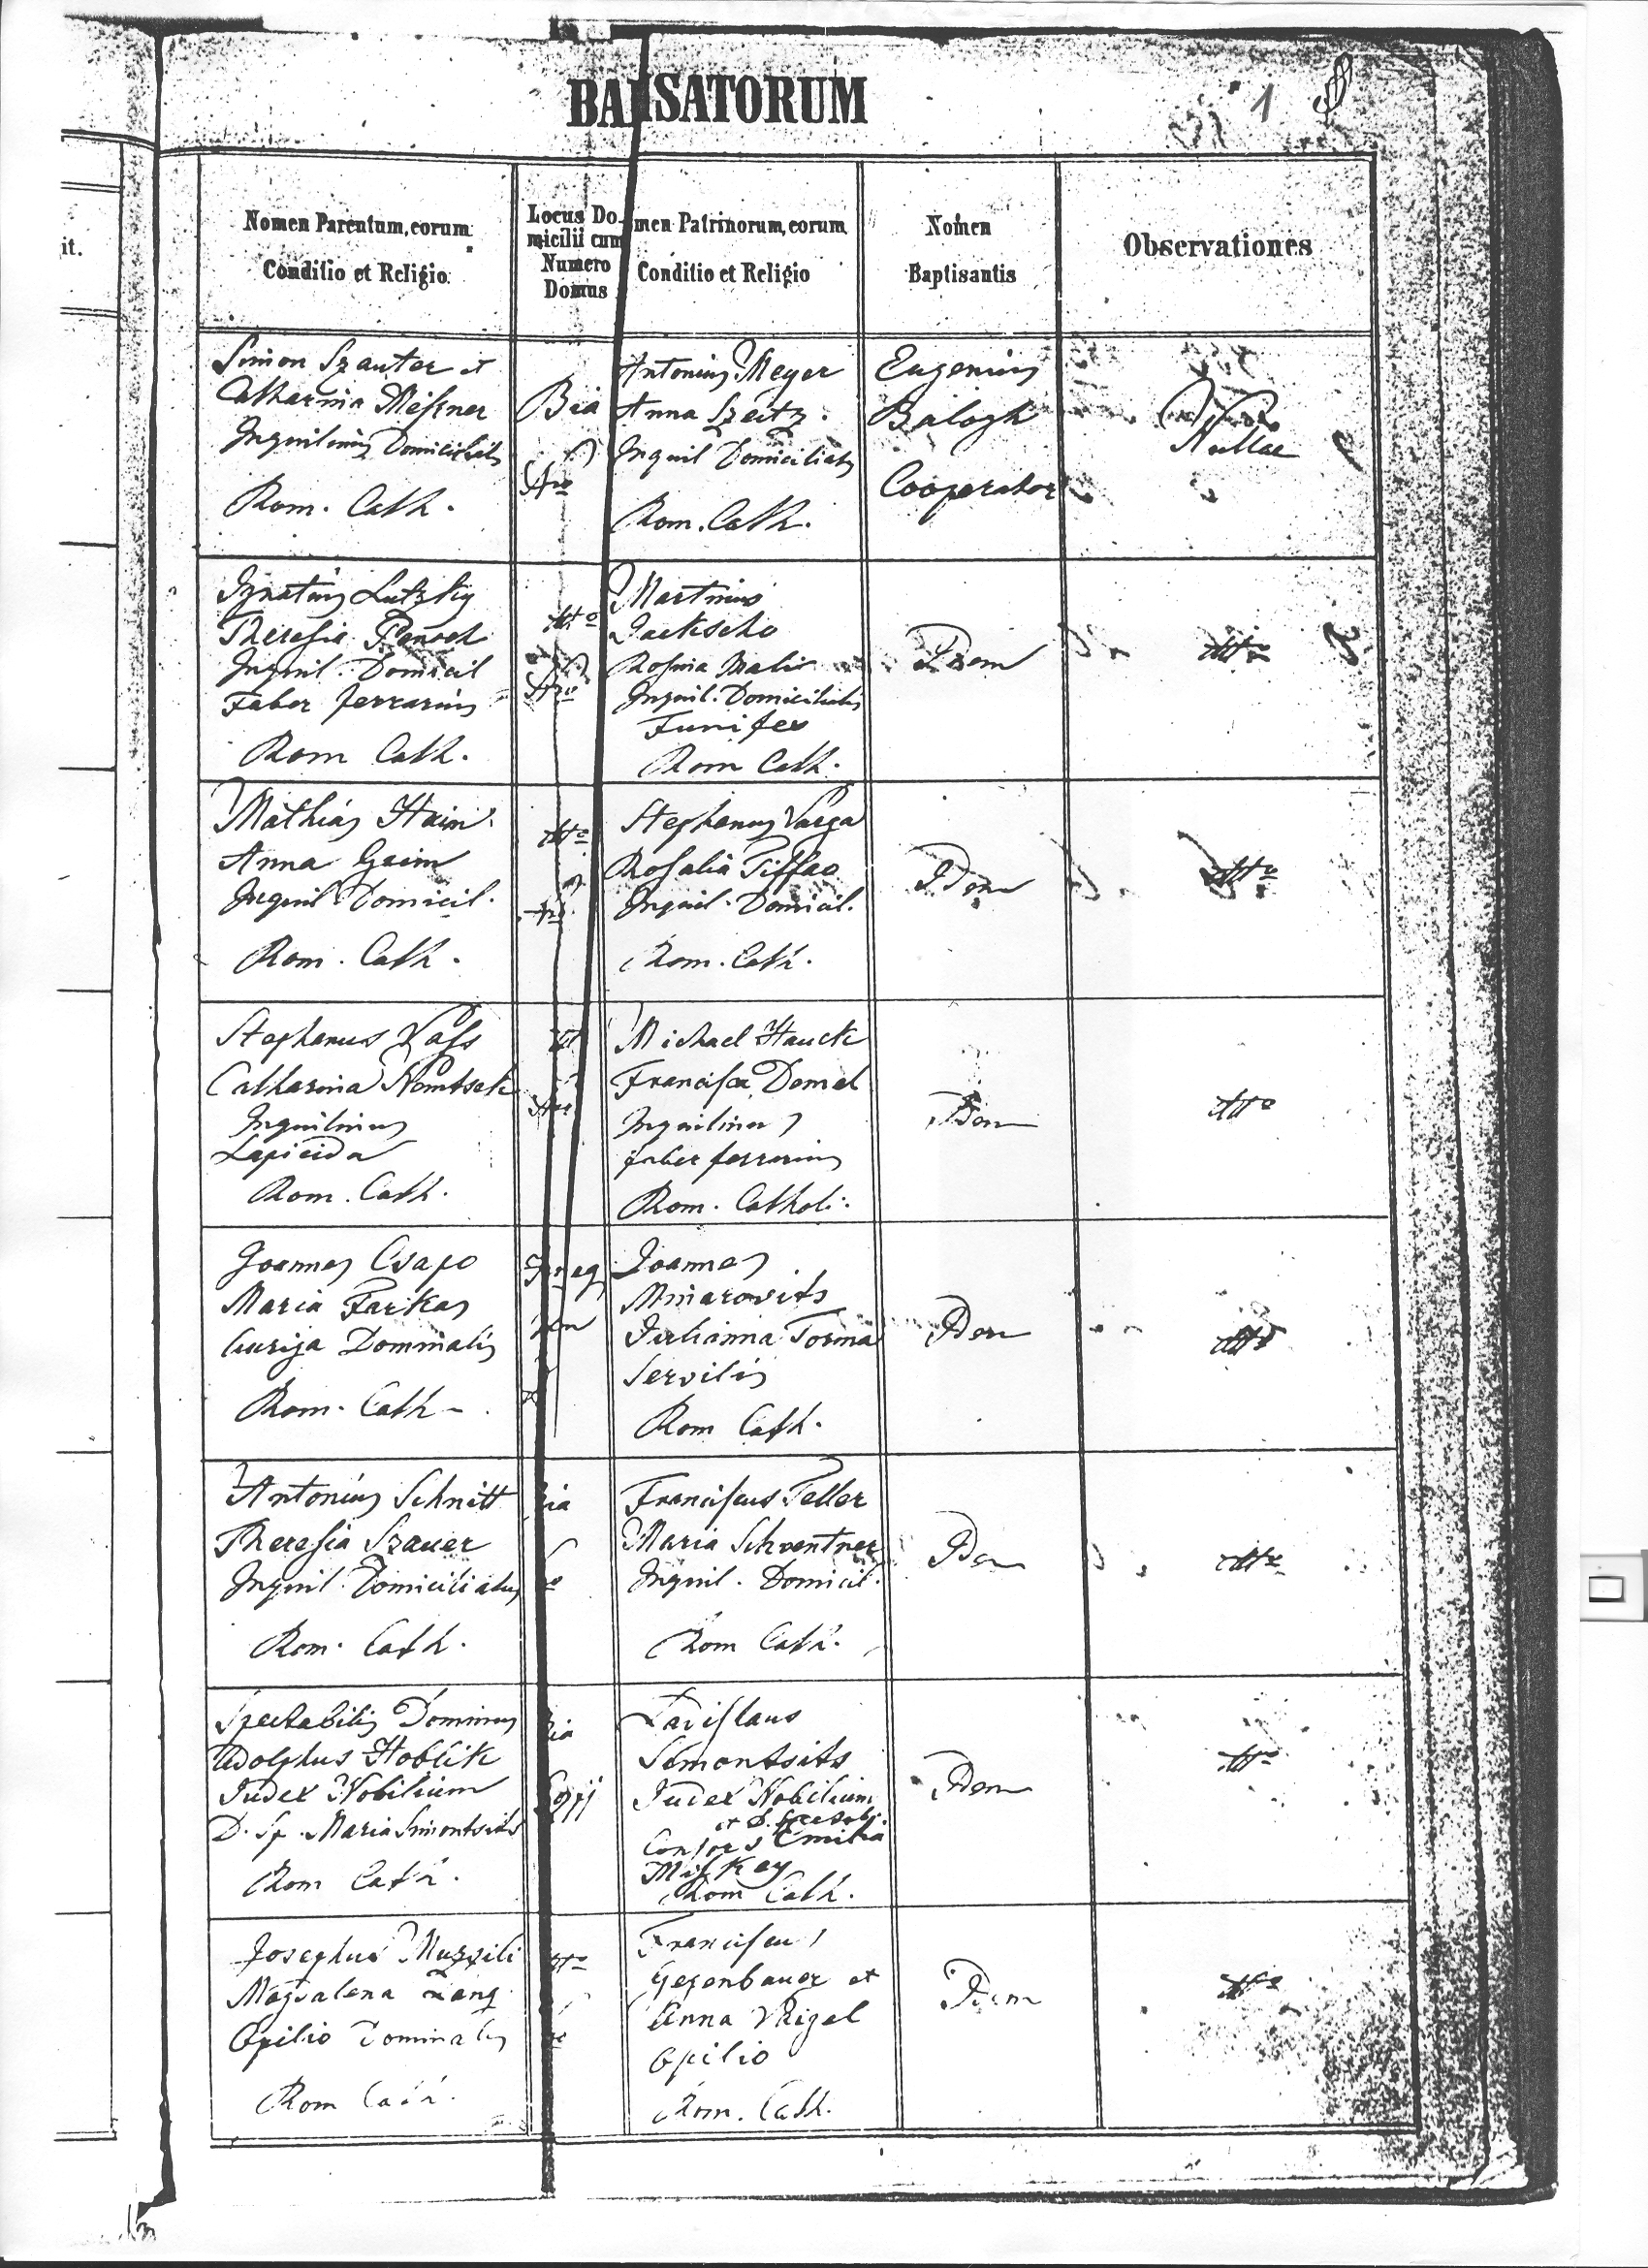 BA SATORUM
1
it.
Nomen Parentum, eorum
Conditio et Religio.
Locus Do-
micilii cum
Numero
Domus
men Patrinorum, eorum
Conditio et Religio
Nomen
Baptisantis
Observationes
Simon Szauter et
Catharina
Inquilinus Domiciliatus
Rom. Cath.
Bia
Antonius Meyer
Anna Szeitz.
Inquil Domiciliatus
Rom. Cath.
Eugenius
Balogh
Cooperator
Nullae
Ignatius Lutzky
Theresia
Inquil. Domicil
Faber ferrarius
Rom Cath.
dtto
Martinus
Jackscho
Rosina
Inquil. Domiciliatus
Funifex
Rom Cath.
Idem
dtto
Mathias Hain
Anna Geim
Inquil Domicil.
Rom. Cath.
dtto
Stephanus Varga
Rosalia
Inquil. Domicil.
Rom. Cath.
Idem
dtto
Stephanus Vass
Catharina
Inquilinus
Lapicida
Rom. Cath.
Michael Hauck
Francisca Domel
Inquilinus
faber ferrarius
Rom. Catholi.
Idem
dtto
Joannes Csapo
Maria Farkas
Curija Dominalis
Rom. Cath.
Joannes
Minarovits
Julianna Torma
Servilis
Rom Cath.
Idem
dtto
Antonius Schnitt
Theresia Szauer
Inquil. Domiciliatus
Rom. Cath.
ia
Franciscus Teller
Maria Schventner
Inquil. Domicil.
Rom Cath.
Idem
dtto
Spectabilis Dominus
Adolphus Hoblik
Judex Nobilium
D. Sp. Maria Simontsits
Rom Cath.
ia
Ladislaus
Simontsits
Judex Nobilium
et D.
Consors Emilia
Miskey
Rom Cath.
Idem
dtto
Josephus Muzsili
Magdalena Lang
Opilio Dominalis
Rom Cath.
Franciscus
Gegenbauer et
Anna Weigel
Opilio
Rom. Cath.
Idem
dtto